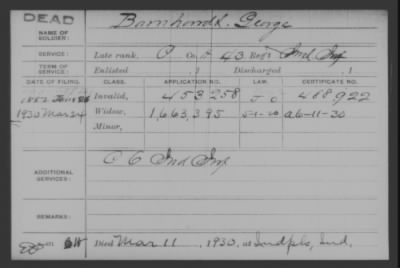 DEAD
NAME OF SOLDIER: Barnhardt, George
SERVICE: Late rank, P Co. A 43 Reg't Ind Inf
TERM OF SERVICE: Enlisted , 1 Discharged , 1
DATE OF FILING. CLASS. APPLICATION NO. LAW. CERTIFICATE NO.
1882 Invalid, 453258 J O 488,922
1930 Mar 24 Widow, 1,663,395 5-1-20 A 6-11-30
Minor,
ADDITIONAL SERVICES: C Ind Inf
REMARKS:
Died Mar 11, 1930, at Indpls, Ind.